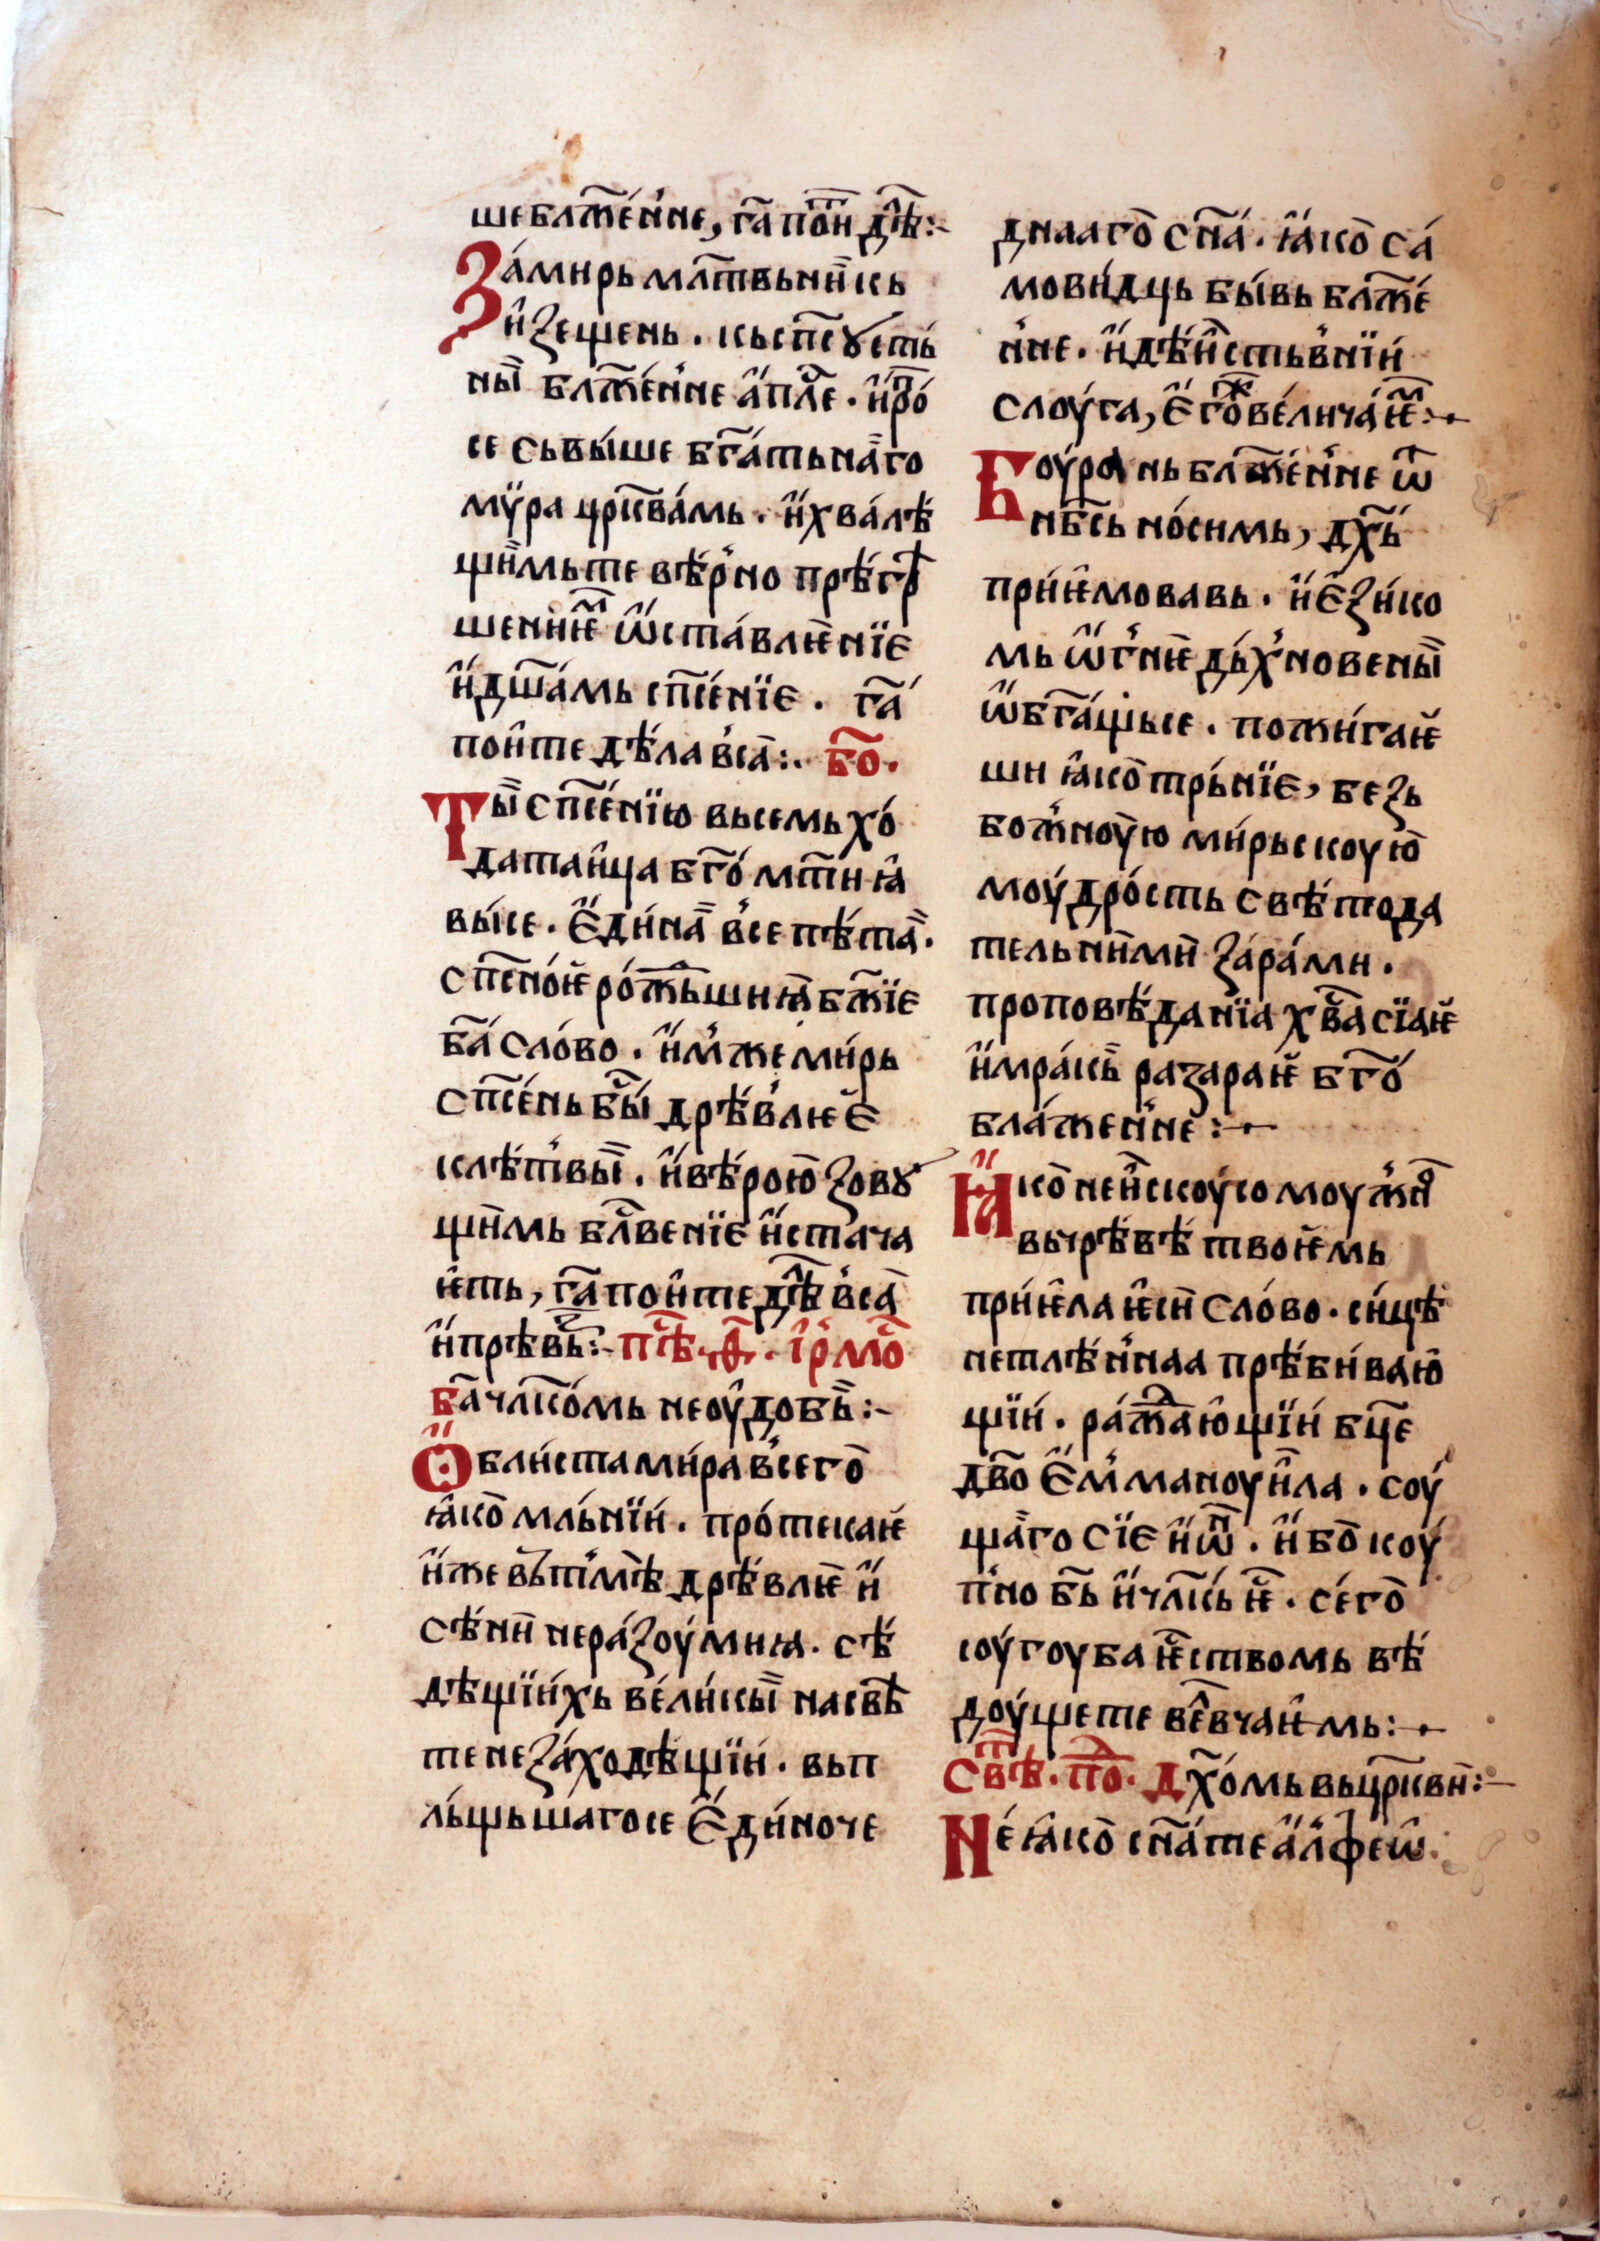 шебл҃же́н'не, гл҃а по́и дѣ́л:-
За́мирь мл҃твьни́кь
и҆зещень. кьсп҃сꙋеть
ны бл҃же́н'не а҆пл҃е. и҆про́
се сьвы́ше бг҃а́тьнаго
мѵ́ра цр҃ква́мь. и҆хва́лѣ
щи́мьте вѣ́р'но прѣ́гр
шени́ѥм ѡ҆ста́влѥнїе
и҆дш҃а́мь сп҃се́нїе. гл҃а́
пои҆те дѣ́ла в'са:. бо҃.
Ты́ сп҃се́нїю вьсемь хо́
датаи҆ца бг҃о́мт҃и ꙗ҆
вы́се. е҆ди́на в'се пѣ́таа.
сп҃сно́ѥ ро́ждьши ꙗ҆ бж҃їе
бг҃а́ сло́во. и҆м'же ми́рь
сп҃се́нь бы́ дрѣ́в'лѥ е҆
клѣ́т'вы. и҆вѣ́рою зовꙋ
щи́мь блв҃енїе и҆стача
ѥ҆ть, гл҃а пои҆те дѣ́л в'са
и҆прѣвь:- пѣ́с. ѳ҃. і҆рмо́
Бг҃а чл҃ко́мь неоу҆добь:-
Ѻ҆бли́ста ми́ра в'сего
ꙗ҆ко мльні́и. про́текаѥ
и҆же вьт'мѣ дрѣ́влѥ и҆
сѣ́ни нера́зоу́миꙗ. сѣ́
дѣщїи́хь вели́кы насвѣ
те неза́ходѣщїи. вьп
льщьша́госе е҆ди́ноче
днааго сн҃а́. ꙗ҆ко са́
мови́дць бы́вь бл҃же́
н'не. и҆дѣи́ств'нїи
слоу́га, е҆гоже величаѥм:⁓
Боурꙗ нь бл҃же́н'не ѿ
нб҃сь но́симь, дх҃ь́
при́ѥмовавь. и҆е҆зи́ко
мь ѡ҆г'нѥ дь́х'новены
ѡ҆бг҃а́щьсе. пожи́гаѥ
ши ꙗ҆ко трь́нїе, безь
бож'ноу́ю ми́рьскоую
моу́дро́сть свѣ́тода
тельними за́рами.
проповѣ́данїа хв҃а сїаѥ
и҆мра́кь разараѥ бг҃о́
бла́жен'не:⁓
Ꙗ҆ко не́искоу́сомоужна
вьчрѣ́вѣ твоѥмь
при́ѥла ѥси сло́во. си́цѣ
нетлѣ́н'наа прѣ́би́ваю
щїи́. ра́ждаю҆щїи́ бц҃е
дв҃о е҆м'маноуи҆ла. соу́
щаго сїе и҆ѡ. и҆ бо коу́
п'но бь и҆чл҃кь ѥ. се́го
соу́гоуба ѥ҆ствомь вѣ́
доу́щете ве́вчаѥмь:⁓
Свѣт. по҃. Дх҃о́мь вьцр҃кви:-
Не́ ꙗ҆ко сн҃а́те а҆лфеѡ.